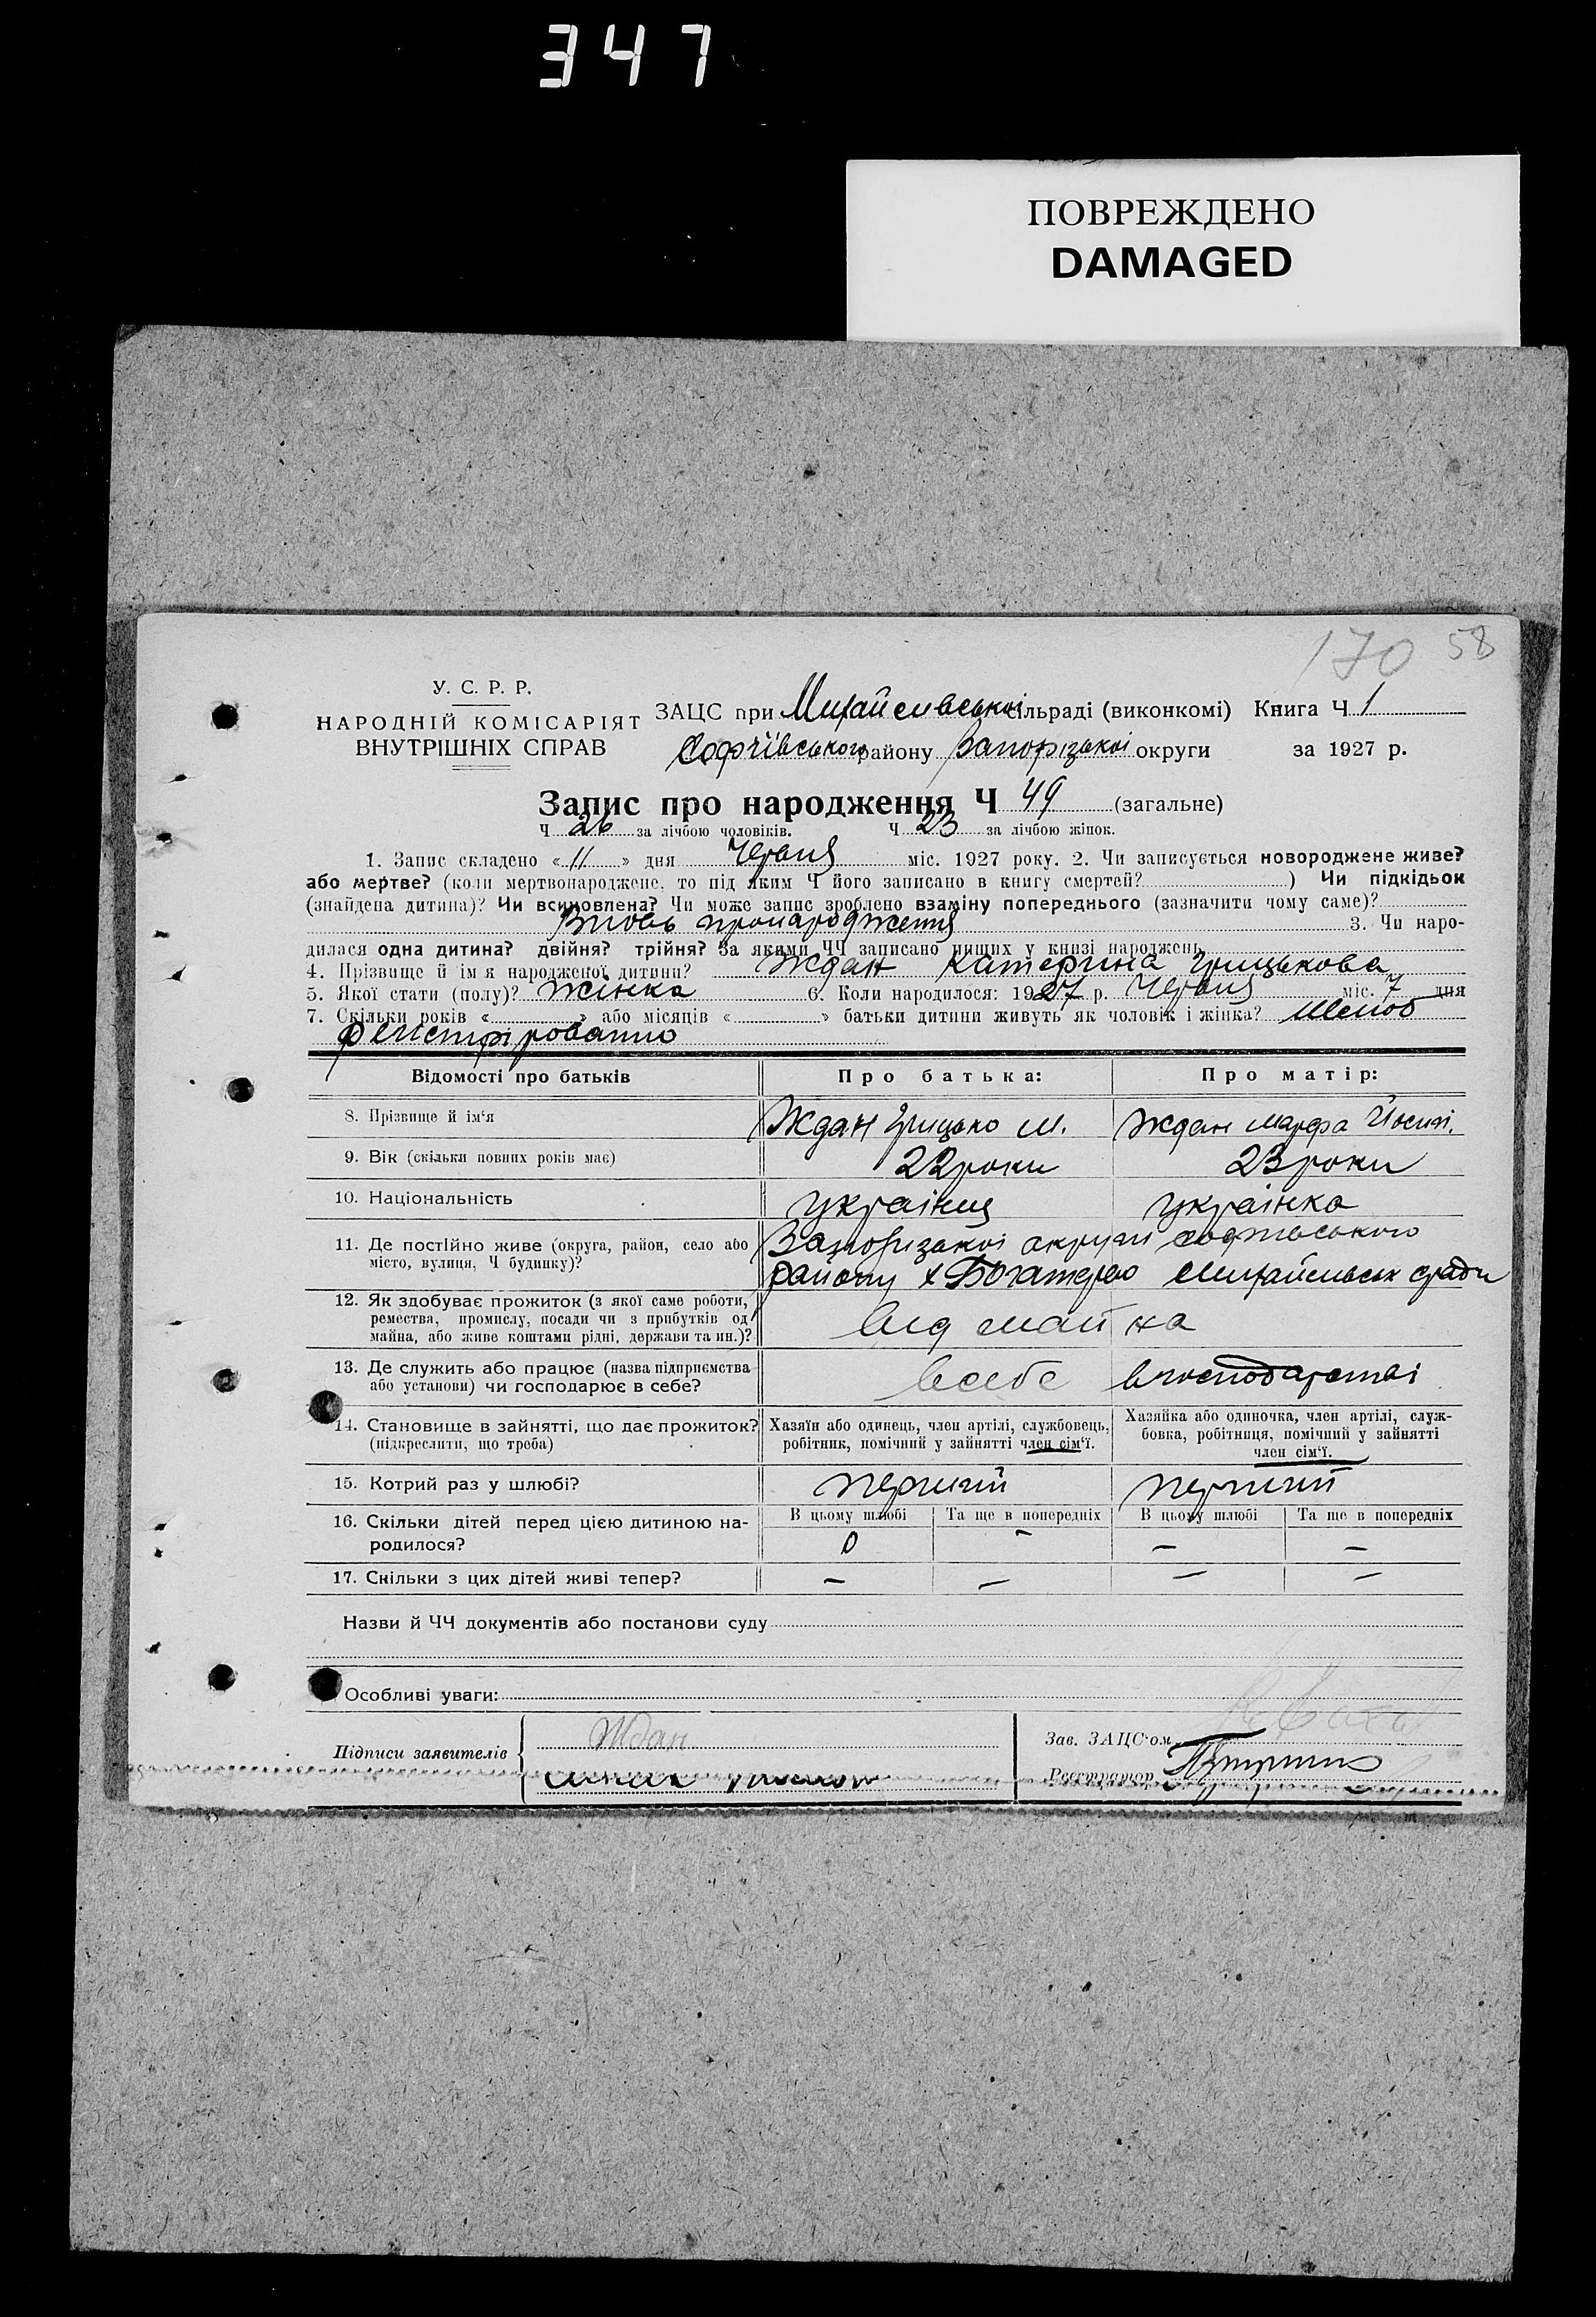 347
ПОВРЕЖДЕНО
DAMAGED
170 58
У. С. Р. Р.
НАРОДНІЙ КОМІСАРІЯТ
ВНУТРІШНІХ СПРАВ
ЗАЦС при Михайлівській сільраді (виконкомі) Книга Ч 1
Софіївського району Запорізької округи за 1927 р.
Запис про народження Ч 49 (загальне)
Ч 26 за лічбою чоловіків. Ч 23 за лічбою жінок.
1. Запис складено «11» дня Червня міс. 1927 року. 2. Чи записується новороджене живе?
або мертве? (коли мертвонароджене, то під яким Ч його записано в книгу смертей? ) Чи підкідьок
(знайдена дитина)? Чи всиновлена? Чи може запис зроблено взаміну попереднього (зазначити чому саме)?
Вновь пронародження 3. Чи наро-
дилася одна дитина? двійня? трійня? За якими ЧЧ записано инших у книзі народжень
4. Прізвище й ім'я народженої дитини? Ждан Катерина Грицькова
5. Якої стати (полу)? Жінка 6. Коли народилося: 1927 р. Червня міс. 7 дня
7. Скільки років « » або місяців « » батьки дитини живуть як чоловік і жінка? Шлюб
Відомості про батьків Про батька: Про матір:
8. Прізвище й ім'я Ждан Грицько М. Ждан Марфа Йосип.
9. Вік (скільки повних років має) 22 роки 23 роки
10. Національність українць українка
11. Де постійно живе (округа, район, село або
місто, вулиця, Ч будинку)?
Запорізької округи Софіївського
району х Богатирю Михайлівськ сради
12. Як здобуває прожиток (з якої саме роботи,
ремества, промислу, посади чи з прибутків од
майна, або живе коштами рідні, держави та ин.)?
від майна
13. Де служить або працює (назва підприємства
або установи) чи господарює в себе?
в себе в господарстві
14. Становище в зайнятті, що дає прожиток?
(підкреслити, що треба)
Хазяїн або одинець, член артілі, службовець,
робітник, помічний у зайнятті член сім'ї.
Хазяйка або одиночка, член артілі, служ-
бовка, робітниця, помічний у зайнятті
член сім'ї.
15. Котрий раз у шлюбі? перший перший
16. Скільки дітей перед цією дитиною на-
родилося?
В цьому шлюбі Та ще в попередніх В цьому шлюбі Та ще в попередніх
0 - - -
17. Скільки з цих дітей живі тепер? - - - -
Назви й ЧЧ документів або постанови суду
Особливі уваги:
Підписи заявителів Ждан
Зав. ЗАЦС'ом
Реєстратор